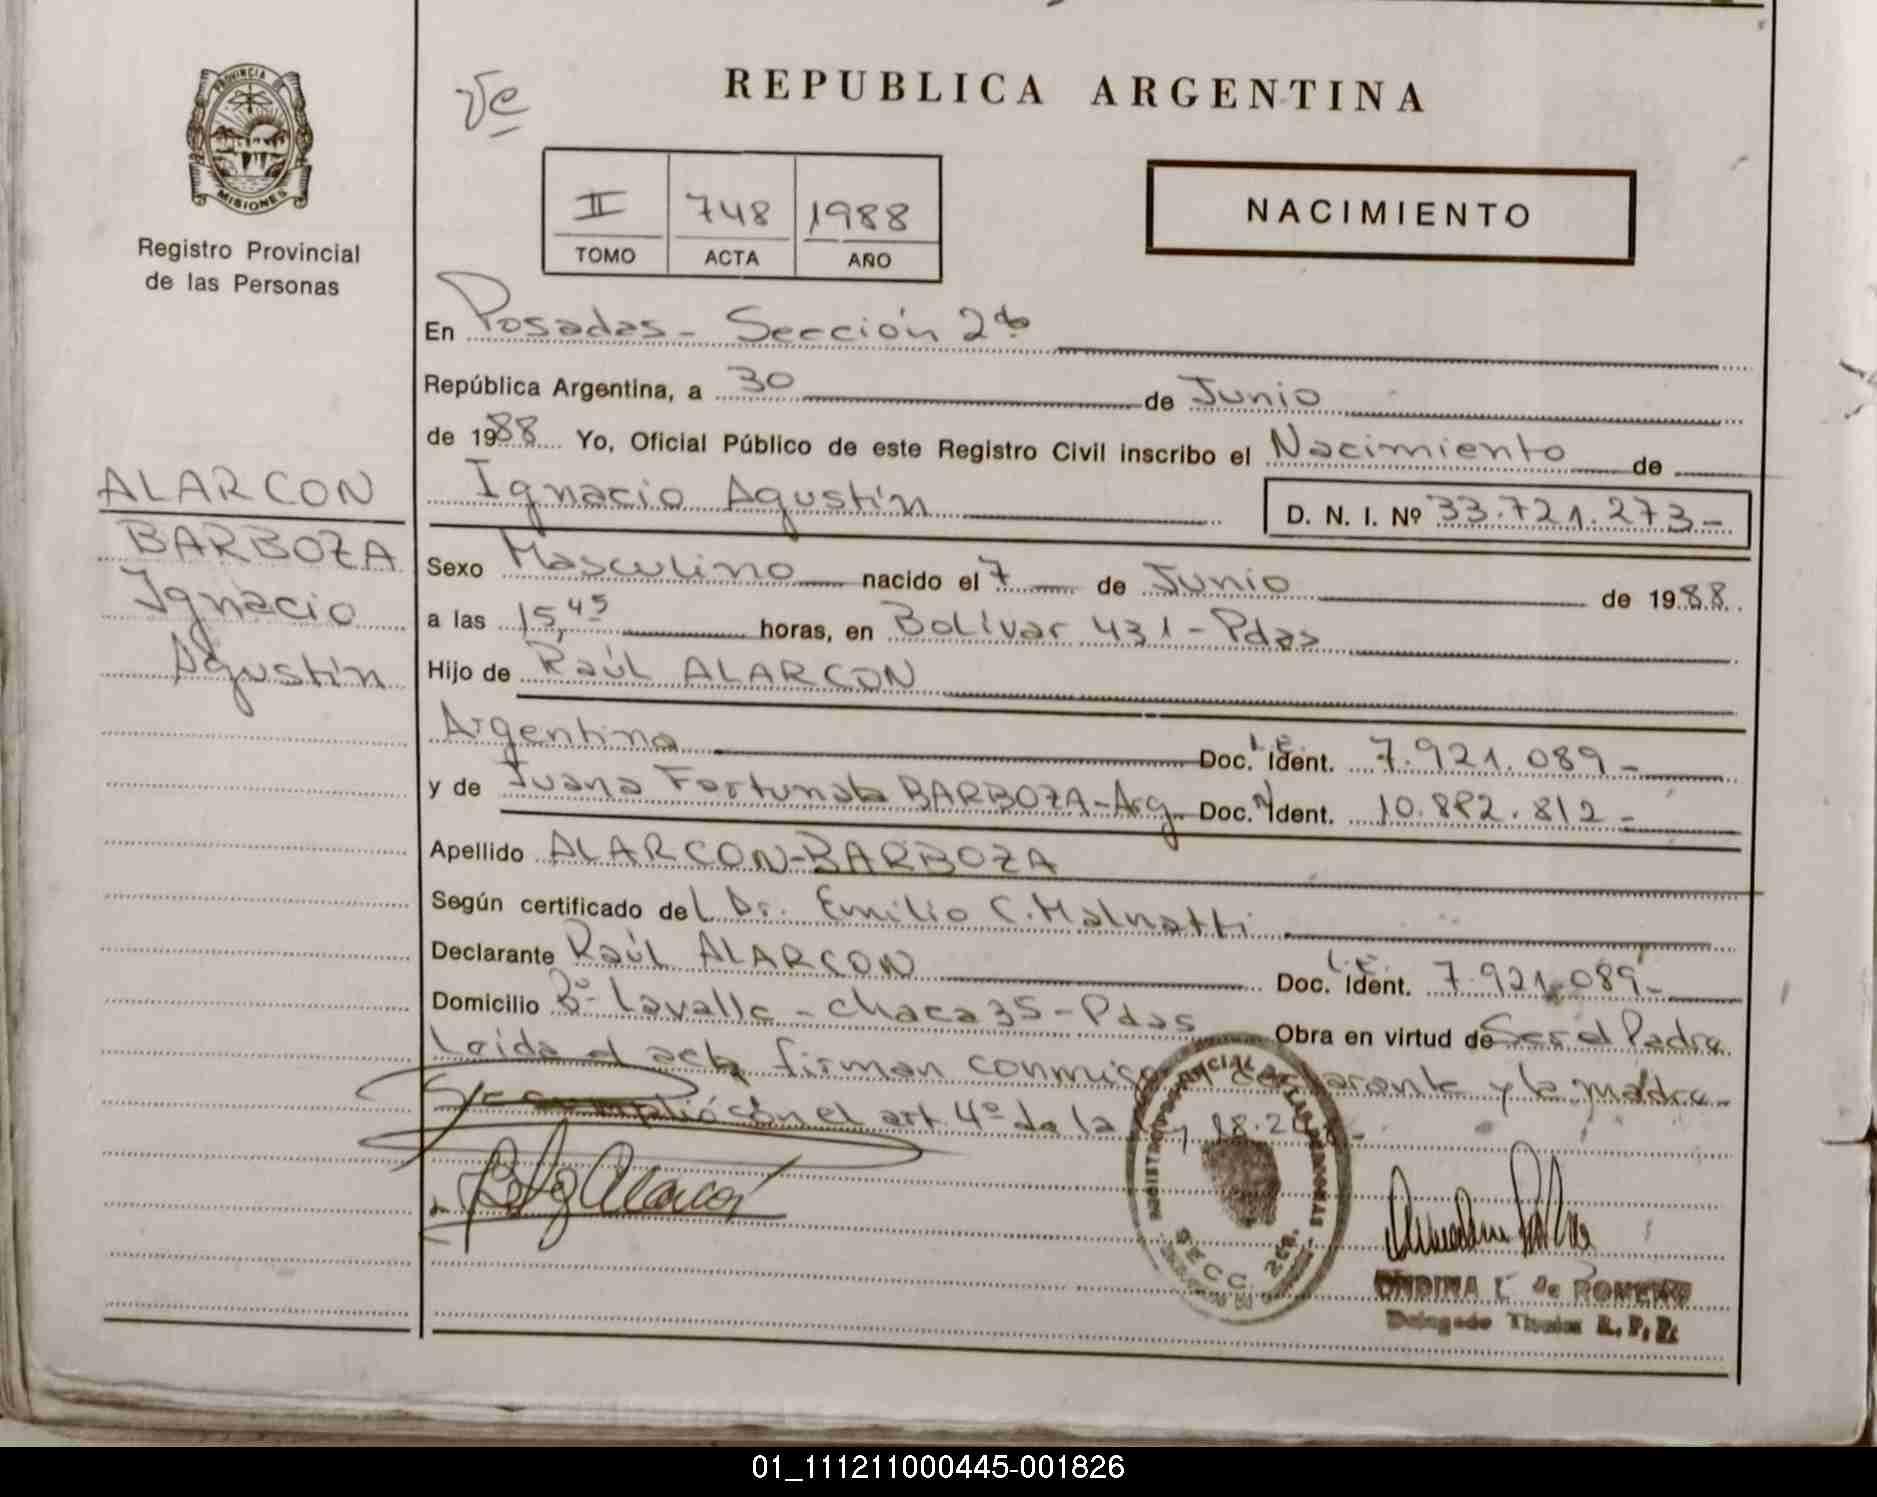 PROVINCIA DE
MISIONES
Registro Provincial
de las Personas
REPUBLICA ARGENTINA
II 748 1988
TOMO ACTA AÑO
NACIMIENTO
En Posadas - Sección 2da
República Argentina, a 30 de Junio
de 1988 Yo, Oficial Público de este Registro Civil inscribo el Nacimiento de
Ignacio Agustín D. N. I. Nº 33.721.273-
ALARCON
BARBOZA
Ignacio
Agustín
Sexo Masculino nacido el 7 de Junio de 1988.
a las 15,45 horas, en Bolívar 431 - Pdas
Hijo de Raúl ALARCON
Argentino Doc. L.E. Ident. 7.921.089-
y de Juana Fortunata BARBOZA-Arg. Doc. Ident. 10.882.812-
Apellido ALARCON-BARBOZA
Según certificado del Dr. Emilio C. Malnatti
Declarante Raúl ALARCON Doc. L.E. Ident. 7.921.089-
Domicilio Bº Lavalle - chaca 35 - Pdas Obra en virtud de Ser el Padre
Leida el acta firman conmigo el declarante y la madre.
Se cumplió con el art. 4º de la
SECC. 2da.
ONDINA L. de ROMERO
Delegado Titular R.P.P.
01_111211000445-001826